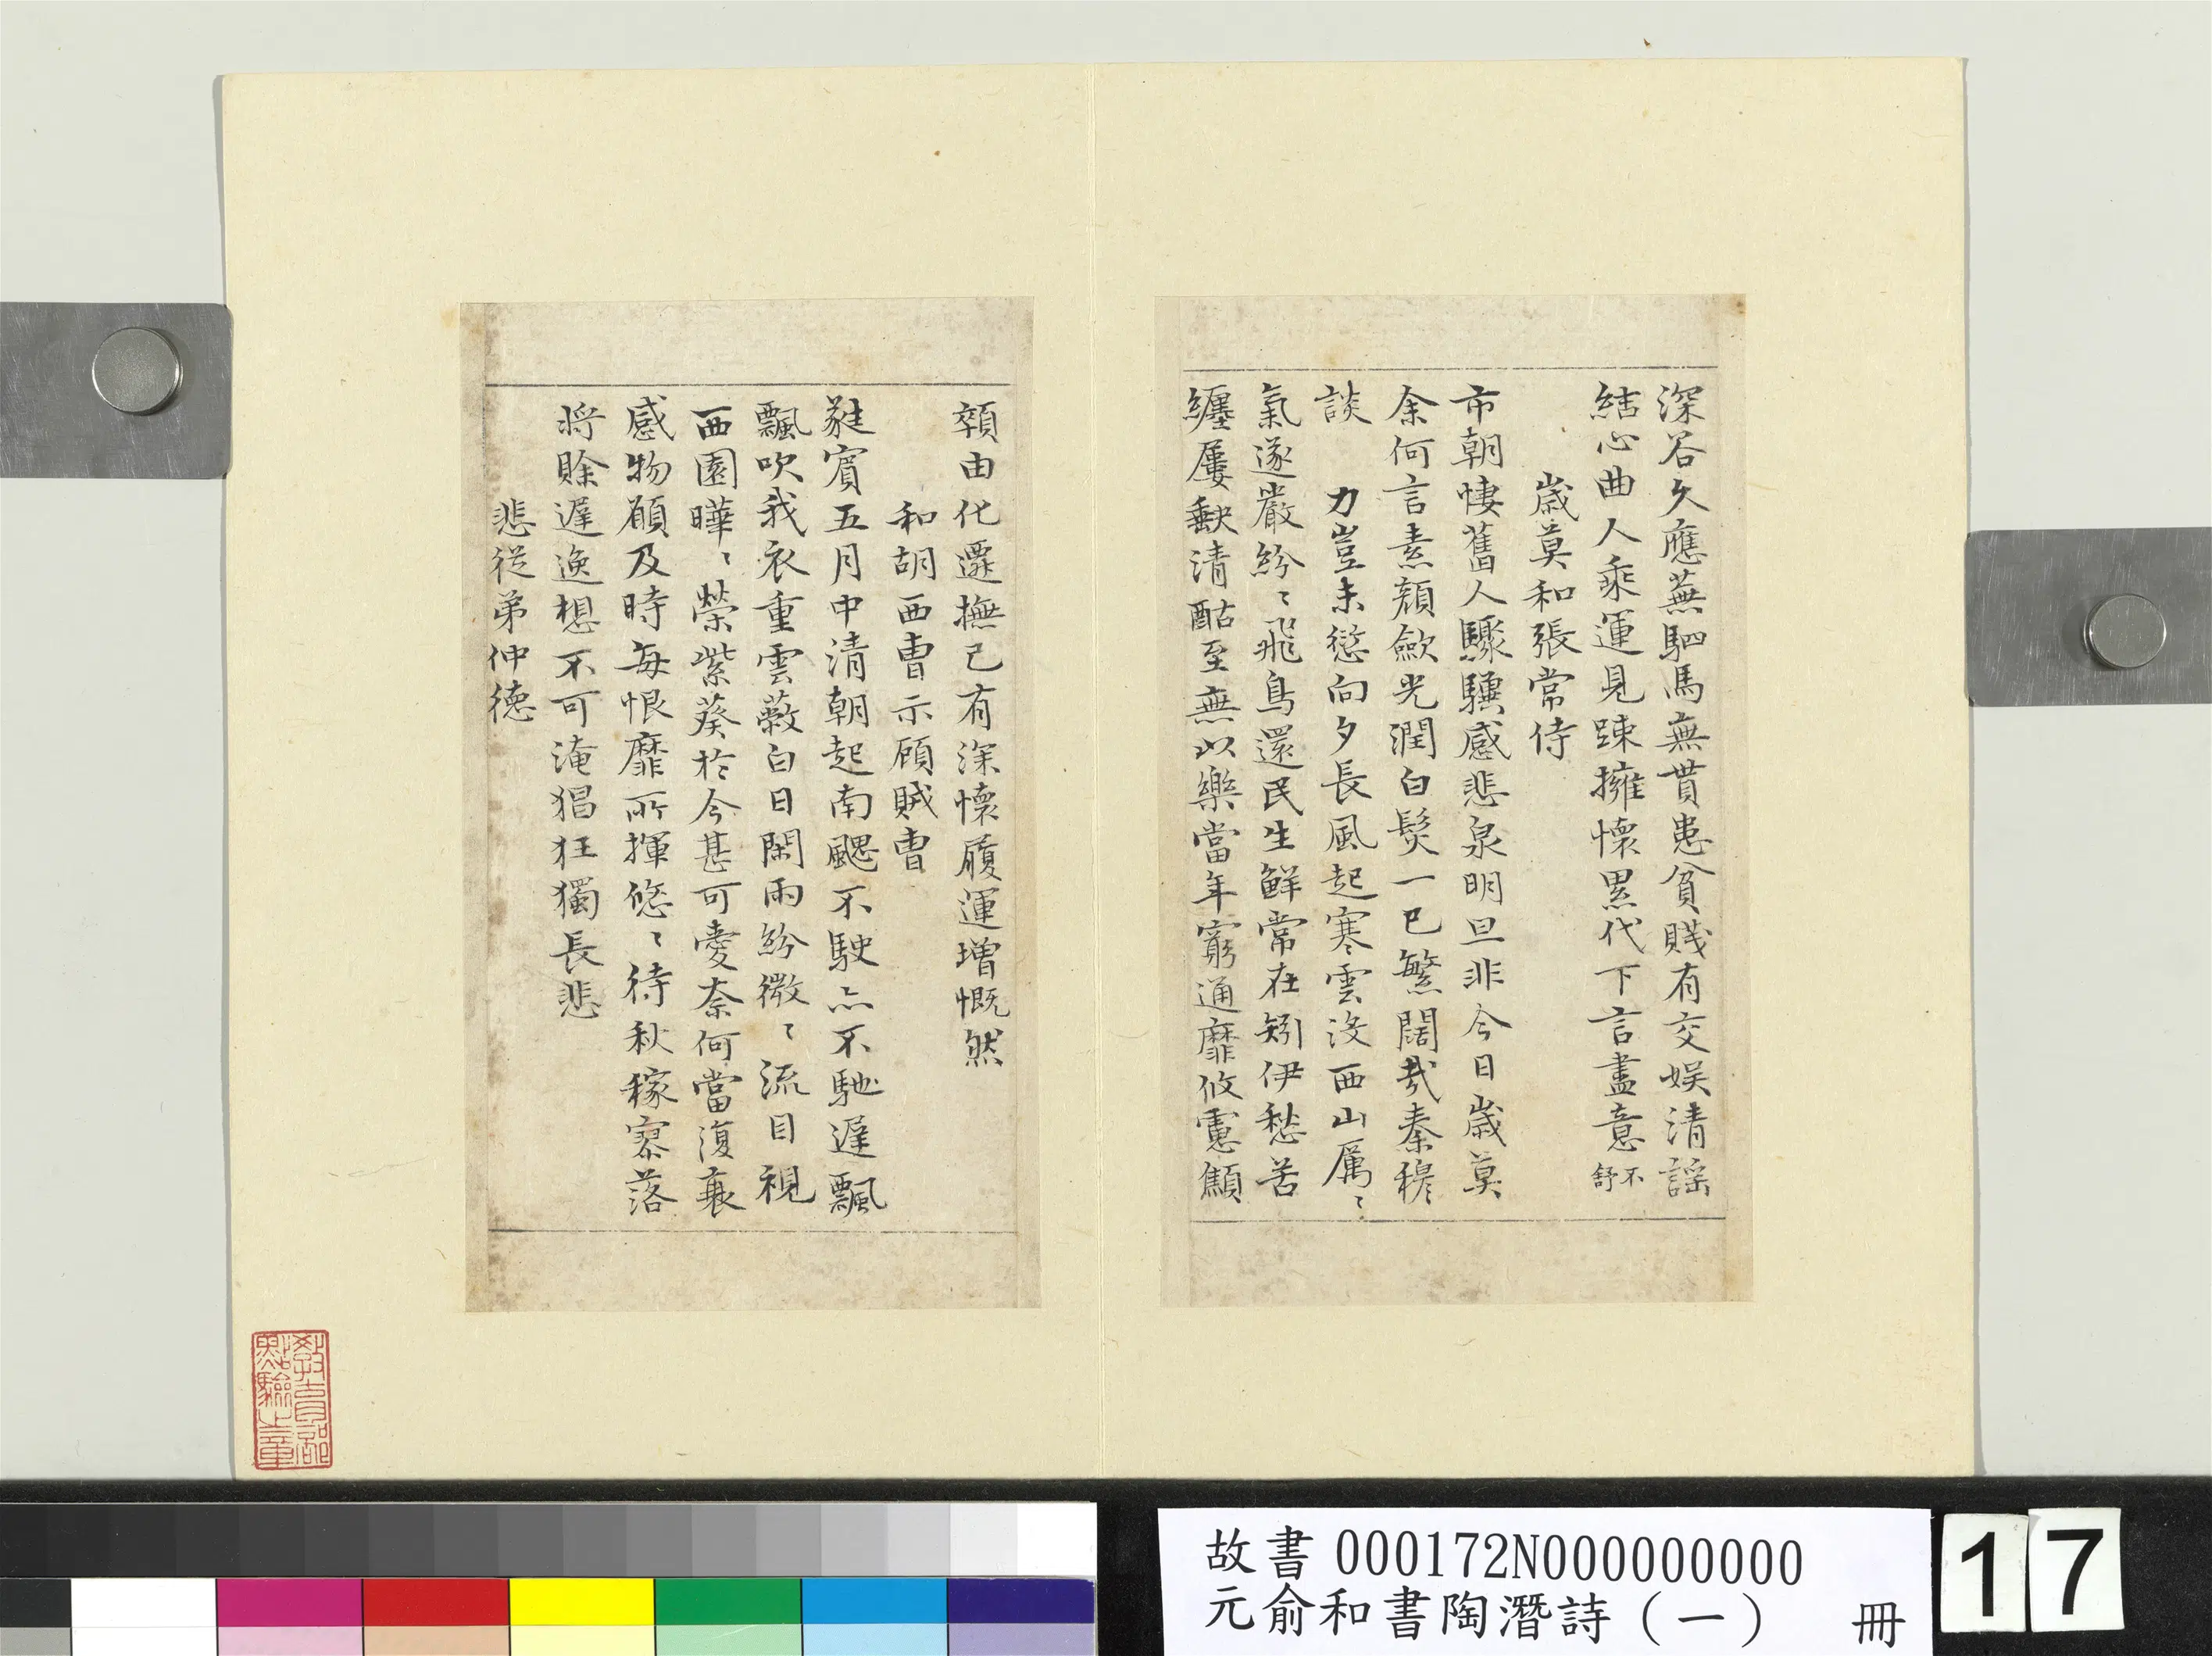 深谷久應蕪駟馬無貰患貧賤有交娛清謡
結心曲人乘運見踈擁懷累代下言盡意不舒
歲莫和張常侍
市朝悽舊人驟驥感悲泉明旦非今日歲莫
余何言素顔歛光潤白髮一已繁闊哉秦穆
談 力豈未愆向夕長風起寒雲沒西山厲〻
氣遂嚴紛〻飛鳥還民生鮮常在矧伊愁苦
纏屢缺清酤至無以樂當年窮通靡攸慮顦
顇由化遷撫己有深懷履運增慨然
和胡西曹示顧賊曹
蕤賓五月中清朝起南颸不駛亦不馳遲飄
飄吹我衣重雲蔽白日閑雨紛微〻流目視
西園曄〻榮紫葵於今甚可愛奈何當復衰
感物願及時每恨靡所揮悠〻待秋稼寥落
將賒遲逸想不可淹猖狂獨長悲
悲從弟仲德
教育部
點驗之章
故書 000172N000000000
元俞和書陶潛詩（一） 冊
17